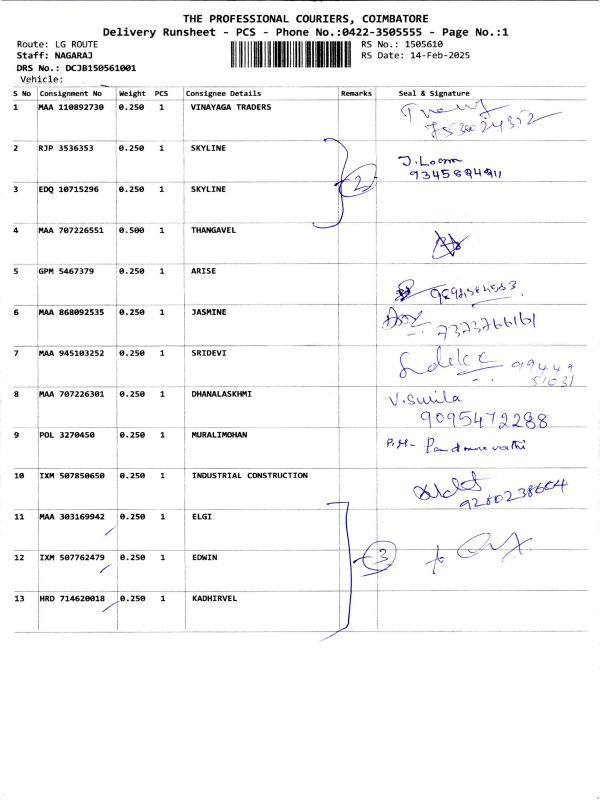 THE PROFESSIONAL COURIERS, COIMBATORE
Delivery Runsheet - PCS - Phone No.:0422-3505555 - Page No.:1
Route: LG ROUTE RS No.: 1505610
Staff: NAGARAJ RS Date: 14-Feb-2025
DRS No.: DCJB150561001
Vehicle:
S No Consignment No Weight PCS Consignee Details Remarks Seal & Signature
1 MAA 110892730 0.250 1 VINAYAGA TRADERS
2 RJP 3536353 0.250 1 SKYLINE J.Loom
2
3 EDQ 10715296 0.250 1 SKYLINE
4 MAA 707226551 0.500 1 THANGAVEL
5 GPM 5467379 0.250 1 ARISE
6 MAA 868092535 0.250 1 JASMINE 7373766161
7 MAA 945103252 0.250 1 SRIDEVI 99449
51031
8 MAA 707226301 0.250 1 DHANALASKHMI V.Suvila
9095472288
9 POL 3270450 0.250 1 MURALIMOHAN P.M-
10 IXM 507850650 0.250 1 INDUSTRIAL CONSTRUCTION 9280238604
11 MAA 303169942 0.250 1 ELGI
12 IXM 507762479 0.250 1 EDWIN 3
13 HRD 714620018 0.250 1 KADHIRVEL